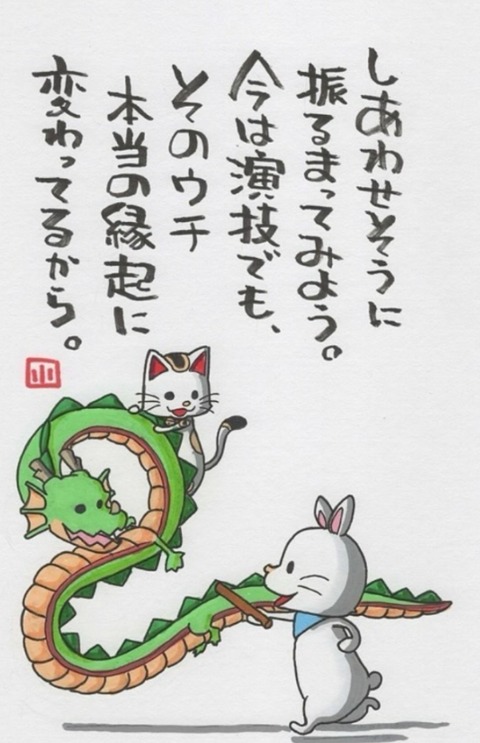 しあわせそうに
振るまってみよう。
今は演技でも、
そのウチ
本当の縁起に
変わってるから。
小